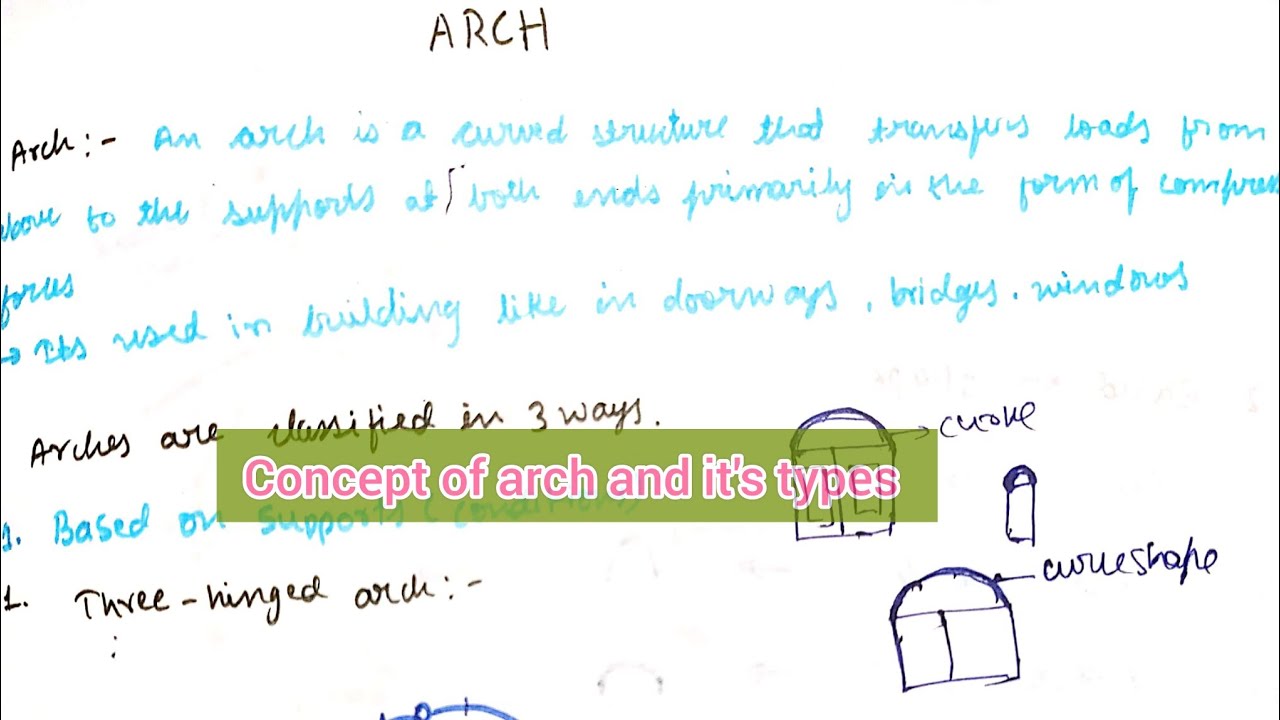 ARCH
Arch:- An arch is a curved structure that transfers loads from
above to the supports at both ends primarily in the form of compres
forces
→ Its used in building like in doorways, bridges, windows
Arches are classified in 3 ways.
curve
Concept of arch and it's types
1. Based on supports (conditions
curve shape
1. Three-hinged arch:-